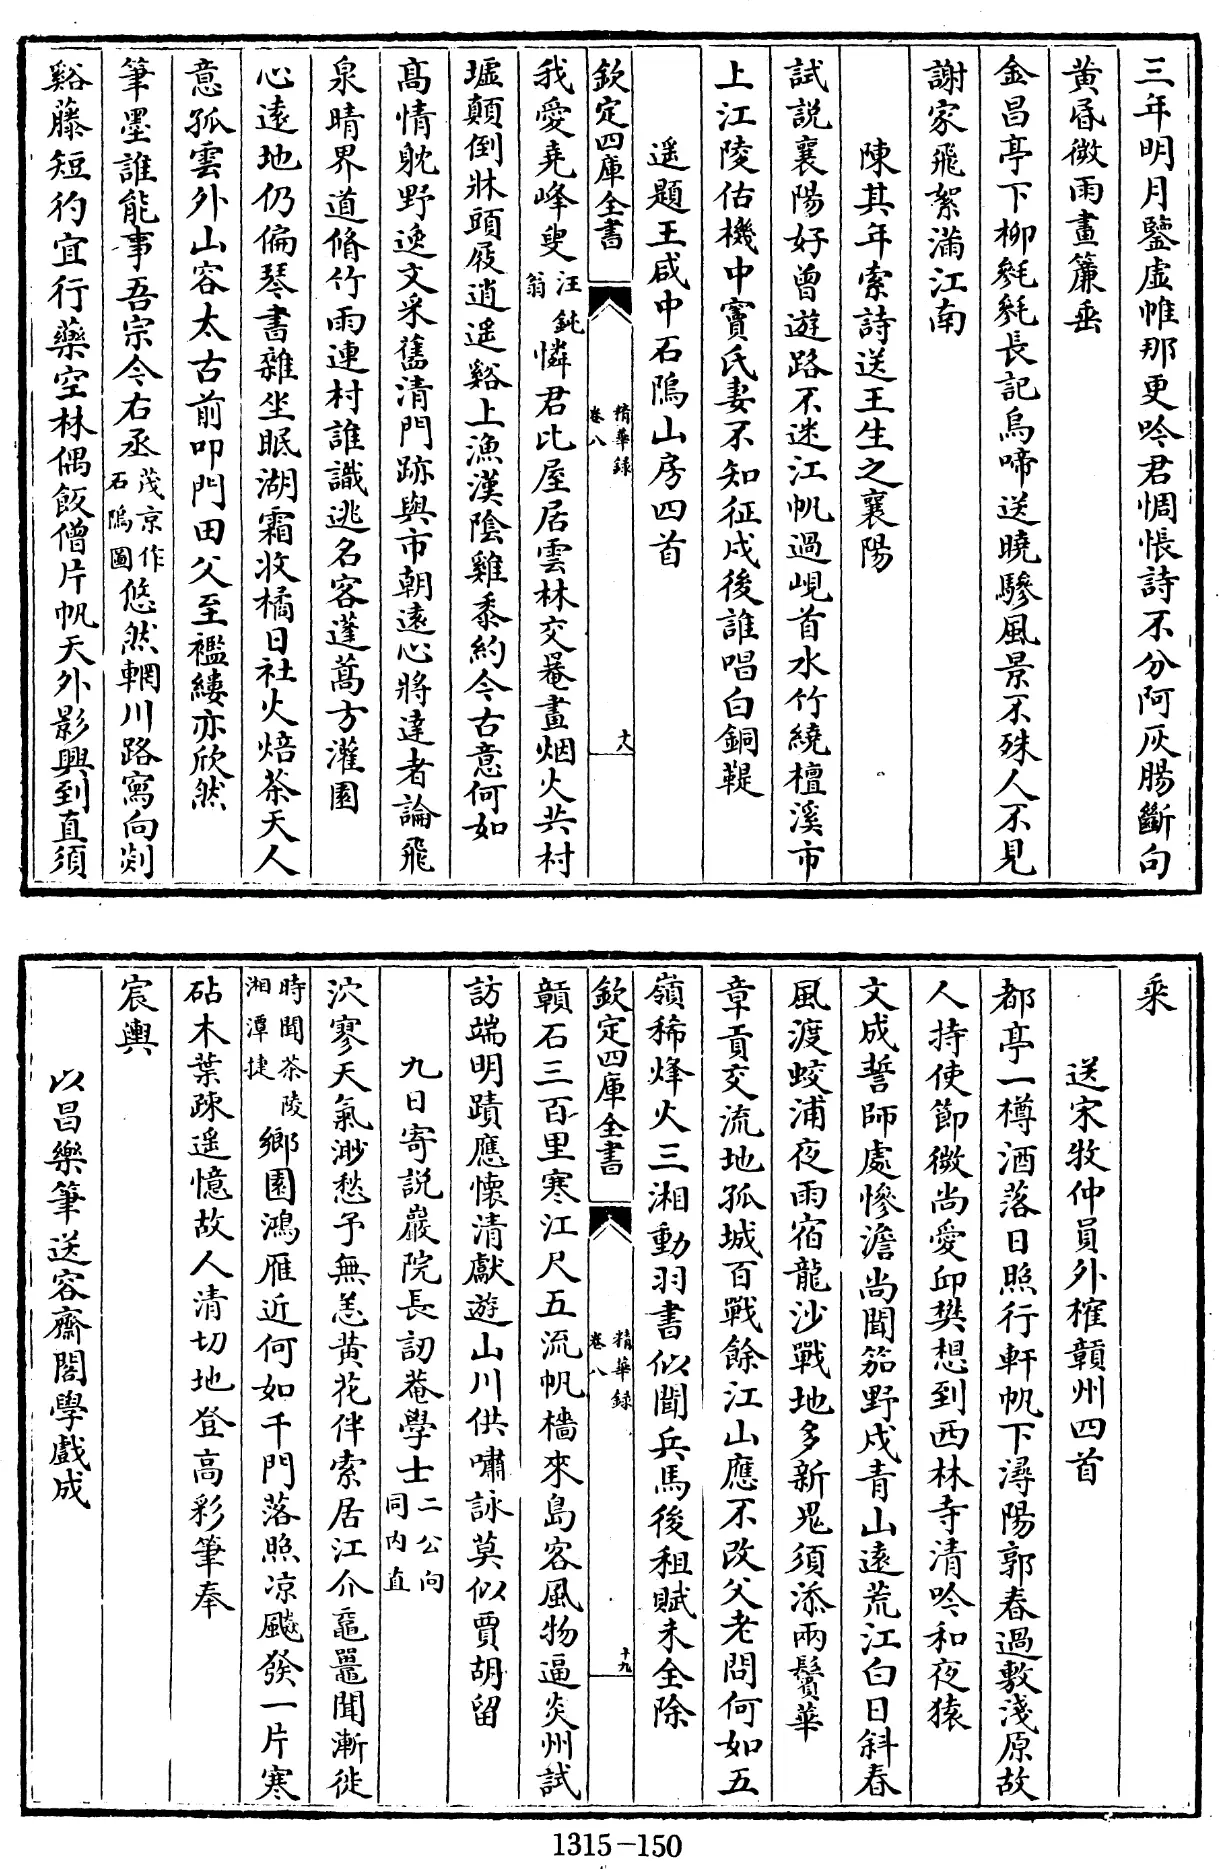 三年明月鑒虛帷那更吟君惆悵詩不分阿灰腸斷向
黃昏微雨畫簾垂
金昌亭下柳毿毿長記烏啼送曉驂風景不殊人不見
謝家飛絮滿江南
陳其年索詩送王生之襄陽
試説襄陽好曾遊路不迷江帆過峴首水竹繞檀溪市
上江陵估機中竇氏妻不知征戍後誰唱白銅鞮
遥題王咸中石隝山房四首
欽定四庫全書
精華録
卷八
十八
我愛堯峰叟汪鈍翁憐君比屋居雲林交罨畫烟火共村
墟顛倒牀頭屐逍遥谿上漁漢陰雞黍約今古意何如
高情躭野逸文采舊清門跡與市朝遠心將達者論飛
泉晴界道脩竹雨連村誰識逃名客蓬蒿方灌園
心遠地仍偏琴書雜坐眠湖霜收橘日社火焙茶天人
意孤雲外山容太古前叩門田父至襤縷亦欣然
筆墨誰能事吾宗今右丞茂京作石隝圖悠然輞川路寫向剡
谿藤短彴宜行藥空林偶飯僧片帆天外影興到直須
乘
送宋牧仲員外榷贛州四首
都亭一樽酒落日照行軒帆下潯陽郭春過敷淺原故
人持使節微尚愛邱樊想到西林寺清吟和夜猿
文成誓師處慘澹尚聞笳野戍青山遠荒江白日斜春
風渡蛟浦夜雨宿龍沙戰地多新鬼須添兩鬢華
章貢交流地孤城百戰餘江山應不改父老問何如五
嶺稀烽火三湘動羽書似聞兵馬後租賦未全除
欽定四庫全書
精華録
卷八
十九
贛石三百里寒江尺五流帆檣來島客風物逼炎州試
訪端明蹟應懷清獻遊山川供嘯詠莫似賈胡留
九日寄説巖院長訒菴學士二公向同内直
泬寥天氣渺愁予無恙黃花伴索居江介黿鼉聞漸徙
時聞茶陵湘潭捷鄉園鴻雁近何如千門落照凉颷發一片寒
砧木葉踈遥憶故人清切地登高彩筆奉
宸輿
以昌樂筆送容齋閣學戲成
1315-150